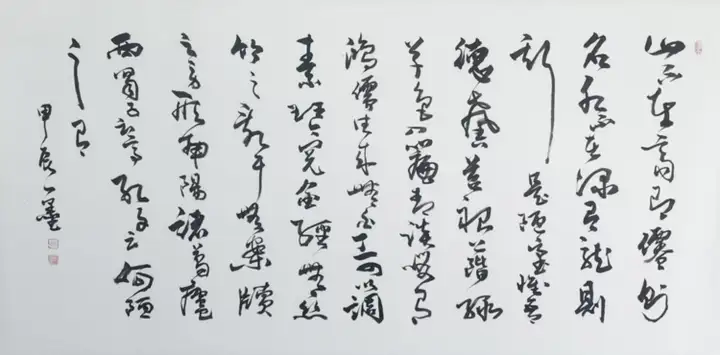 山不在高有僊則
名水不在深有龍則
斯是陋室惟吾
德馨苔痕上階綠
草色入簾青談笑有
鴻儒往來無白丁可以調
素琴閱金經無絲
竹之亂耳無案牘
之勞形南陽諸葛廬
西蜀子雲亭孔子云何陋
之有
甲辰一墨